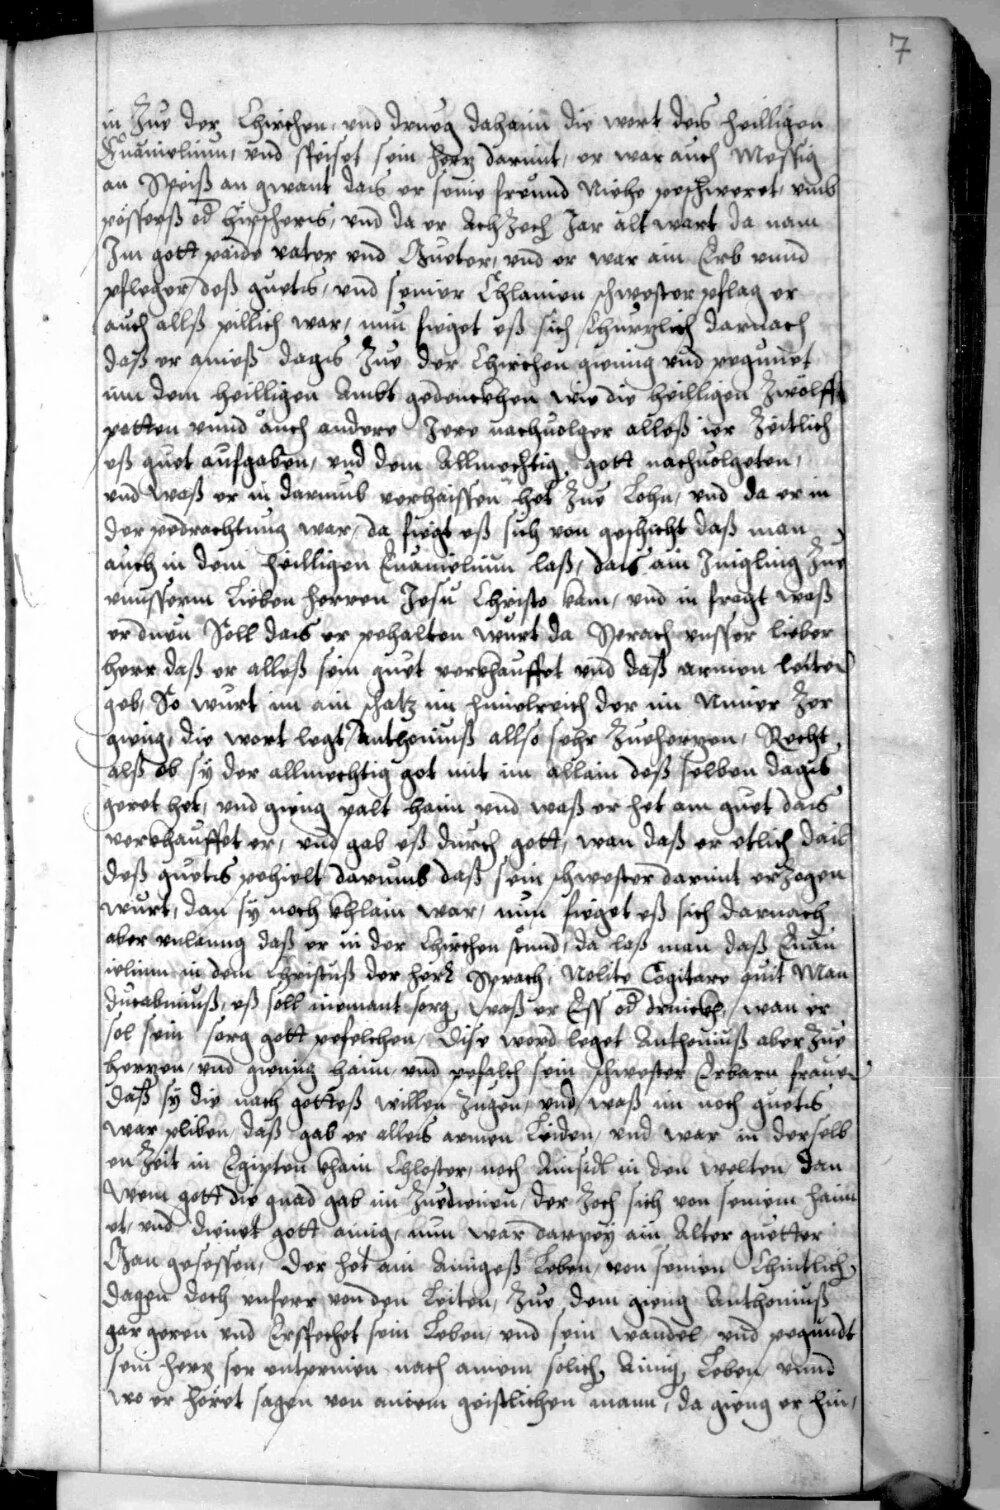 7
in Zue der Chirchen, und drueg dahaim die wort des heilligen
Euamelium, und speiset sein herz darmit, er war auch Messig
an Speiß an gwant das er seine freund Niehe peschweret, umb
pössers od hüpschers, und da er AchZech Jar alt wart da nam
Im gott paide vater und Mueter, und er war ain Erb unnd
pfleger deß guets, und seiner Chlainen schwester pflag er
auch allß pillich war, nun fieget eß sich Churzlich darnach
daß er aineß dages Zue der Chirchen gieng und pegunet
im dem heilligen Ambt gedenckhen wie die heilligen Zwölff
potten unnd auch andere Jere nachvolger alleß ier Zeitlich
eß guet aufgaben, und dem Allmechtig gott nachvolgeten,
und waß er in darumb verhaissen het Zue Lohn, und da er in
der pedrachtung war, da fiegt eß sich von geschicht daß man
auch in dem heilligen Euamelium laß, das ain Jungling Zue
unnsserm Lieben herren Jesu Christo kam, und in fragt waß
er duen Soll das er pehalten wurt da Sprach unsser lieber
herr daß er alleß sein guet verkhauffet und daß armen leiten
geb, So wurt im ain schatz im himelreich der im Nimer Zer
gieng, die wort legt Anthoniuß allso sehr Zueherzen, Recht
alß ob sy der allmechtig got mit im allain deß selben dages
geret het, und gieng palt haim und waß er het am guet das
verkhauffet er, und gab eß durch gott, wan daß er etlich dail
deß guets pehielt darumb daß sein schwester darmit erzogen
wurt, dan sy noch khlain war, nun fieget eß sich darnach
aber unlanng daß er in der Chirchen stund, da laß man daß Euan
ielium in dem Christuß der herr Sprach, Nolite Cogitare quit Man
ducabmiuß, eß soll niemant sorg, waß er Ess od drinckh, wan er
sol sein sorg gott pefelchen, dise word leget Anthoniuß aber Zue
herzen, und gieng haim und pefalch sein schwester Erbarn frauen
daß sy die nach gotteß willen Zugen, und waß im noch guets
war pliben, daß gab er alles armen Leiden, und war in derselb
en Zeit in Egipten khain Chloster, noch Ainsidl in den welten, dan
wem gott die gnad gab im Zuedienen, der Zoch sich von seinem haim
et, und dienet gott ainig, nun war darpey ain Alter guetter
Man gesessen, der het ain Ainigeß Leben, von seinen Chintlich
dagen doch unferr von den Leiten, Zue dem gieng Anthoniuß
gar geren und Erspechet sein Leben, und sein wandel und pegundt
sein herz ser entprinnen nach ainem solich Ainig Leben unnd
wo er höret sagen von ainem geistlichen mann, da gieng er hin,